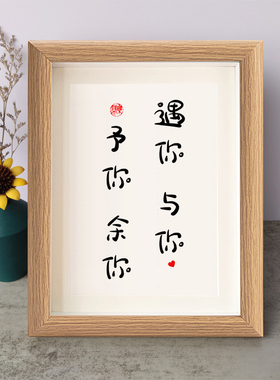 遇你 与你
予你 余你